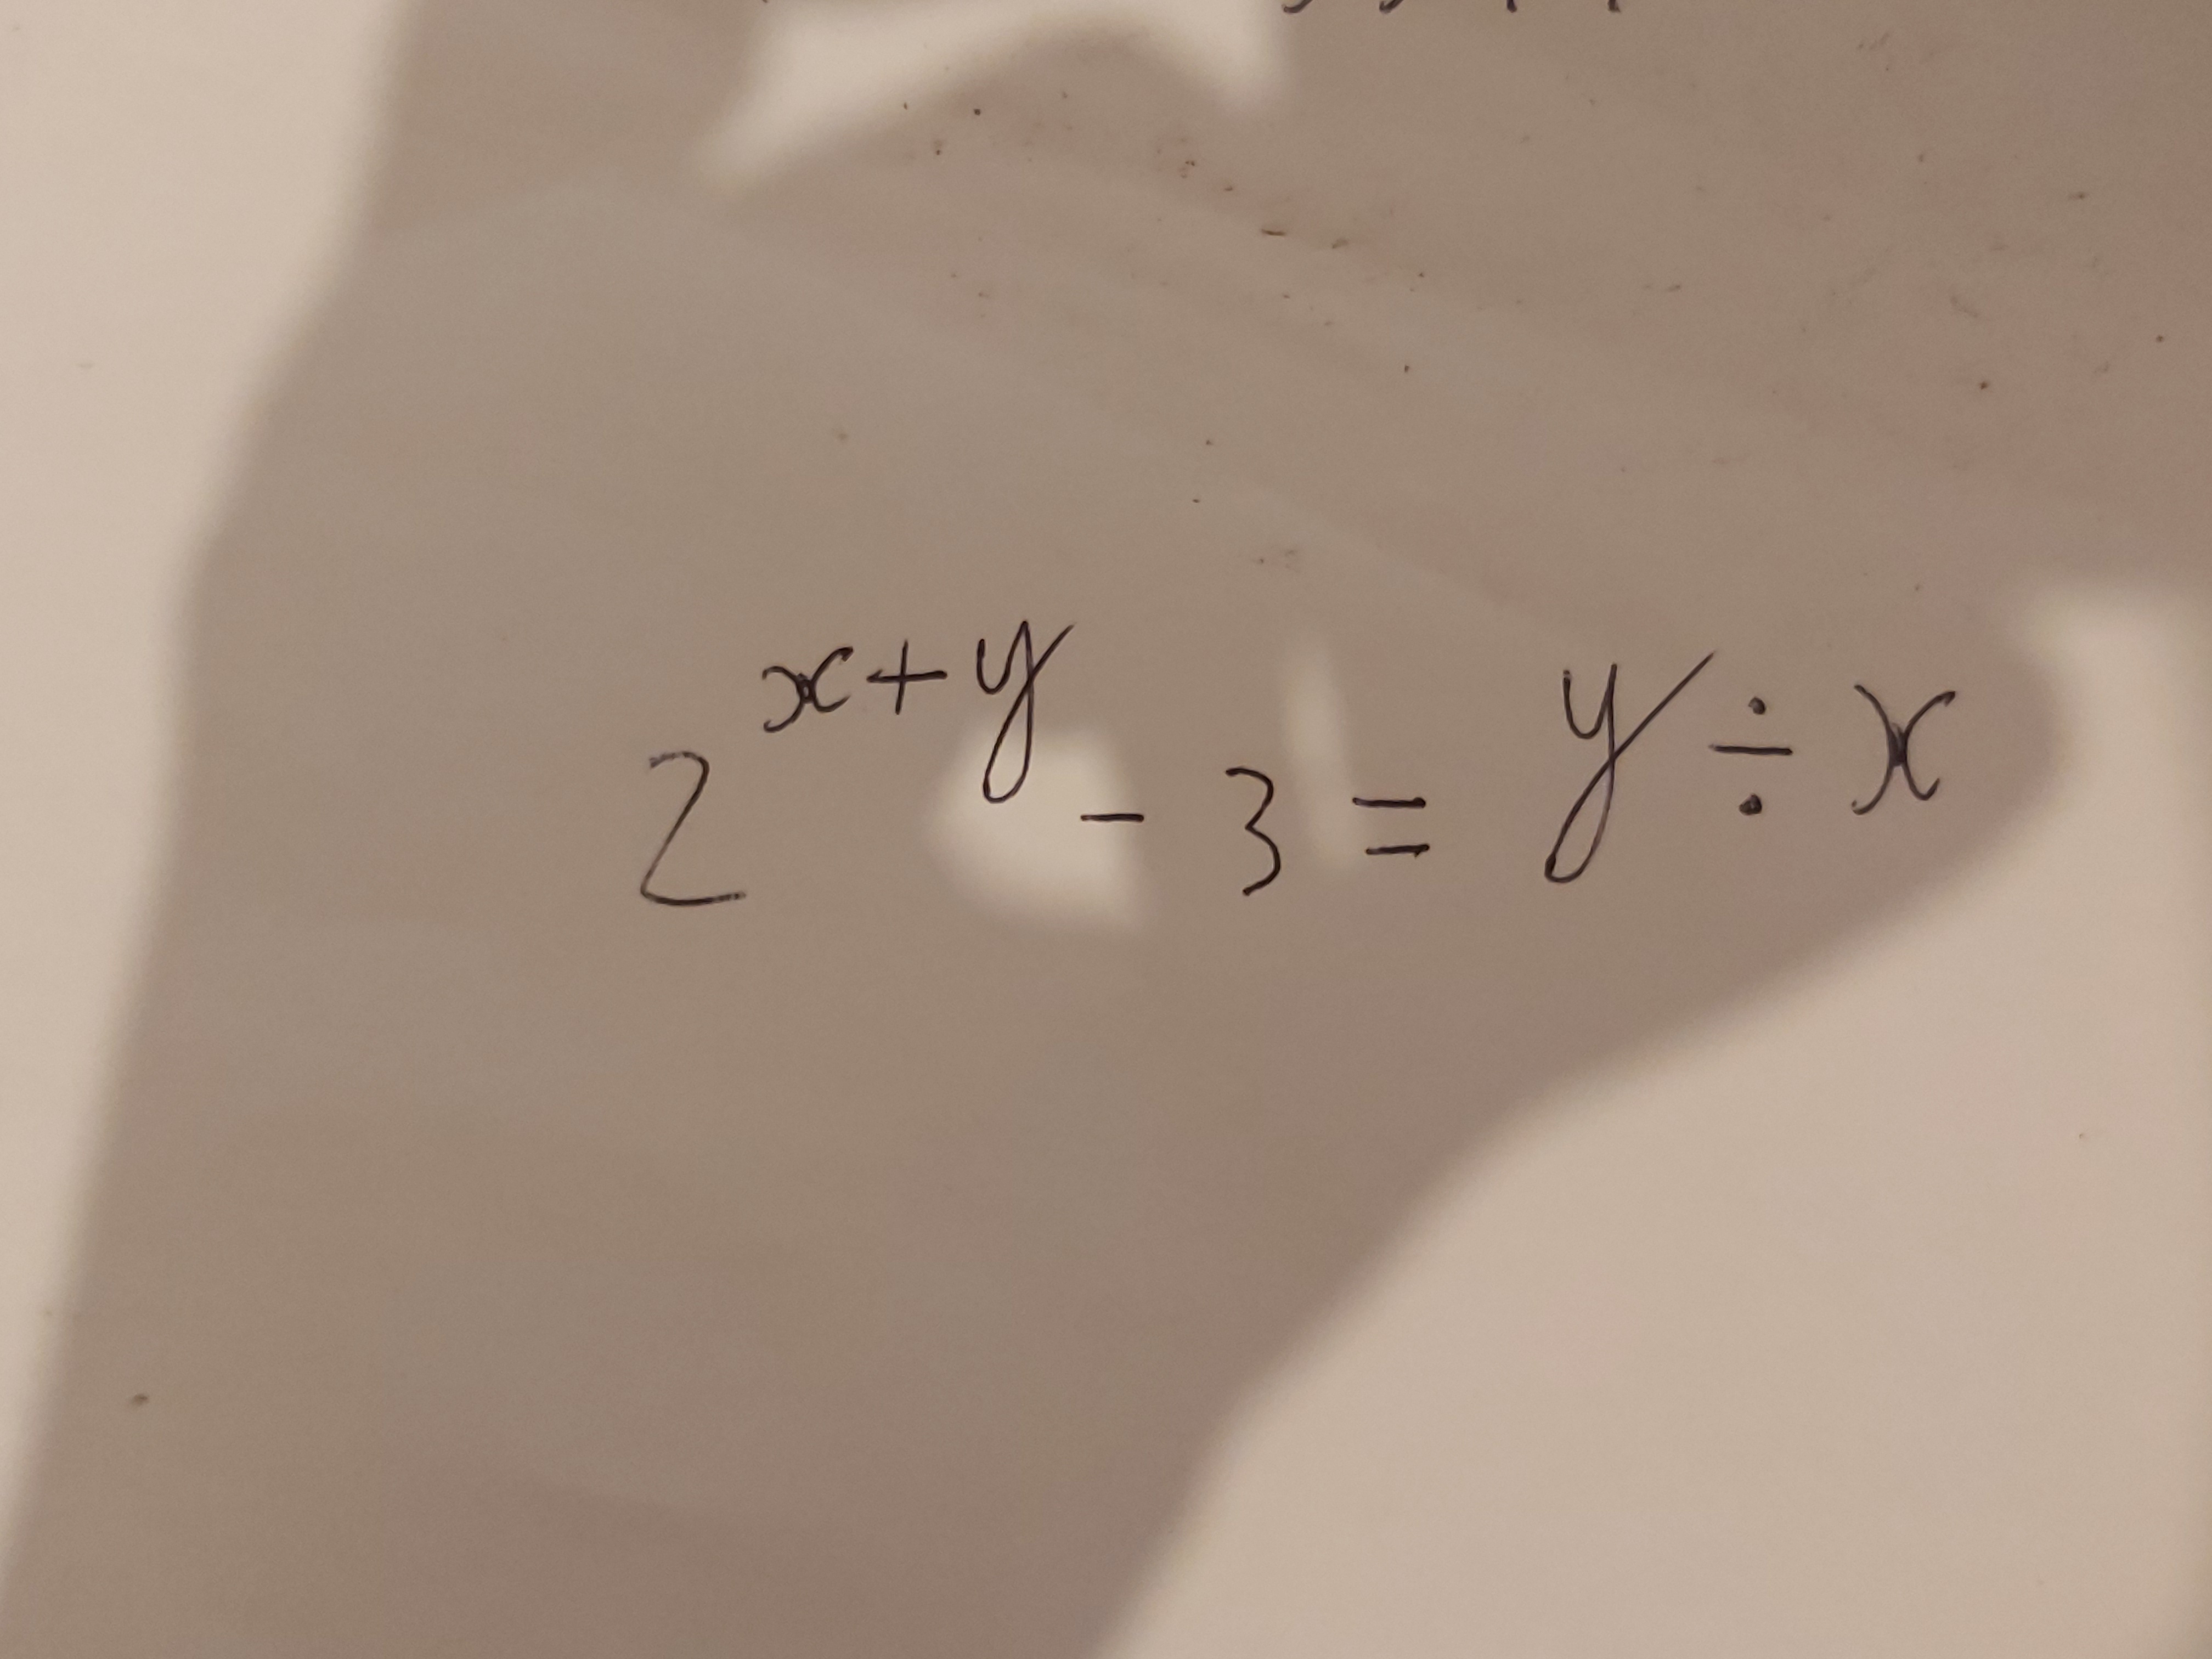 2^{x+y} - 3 = y ÷ x